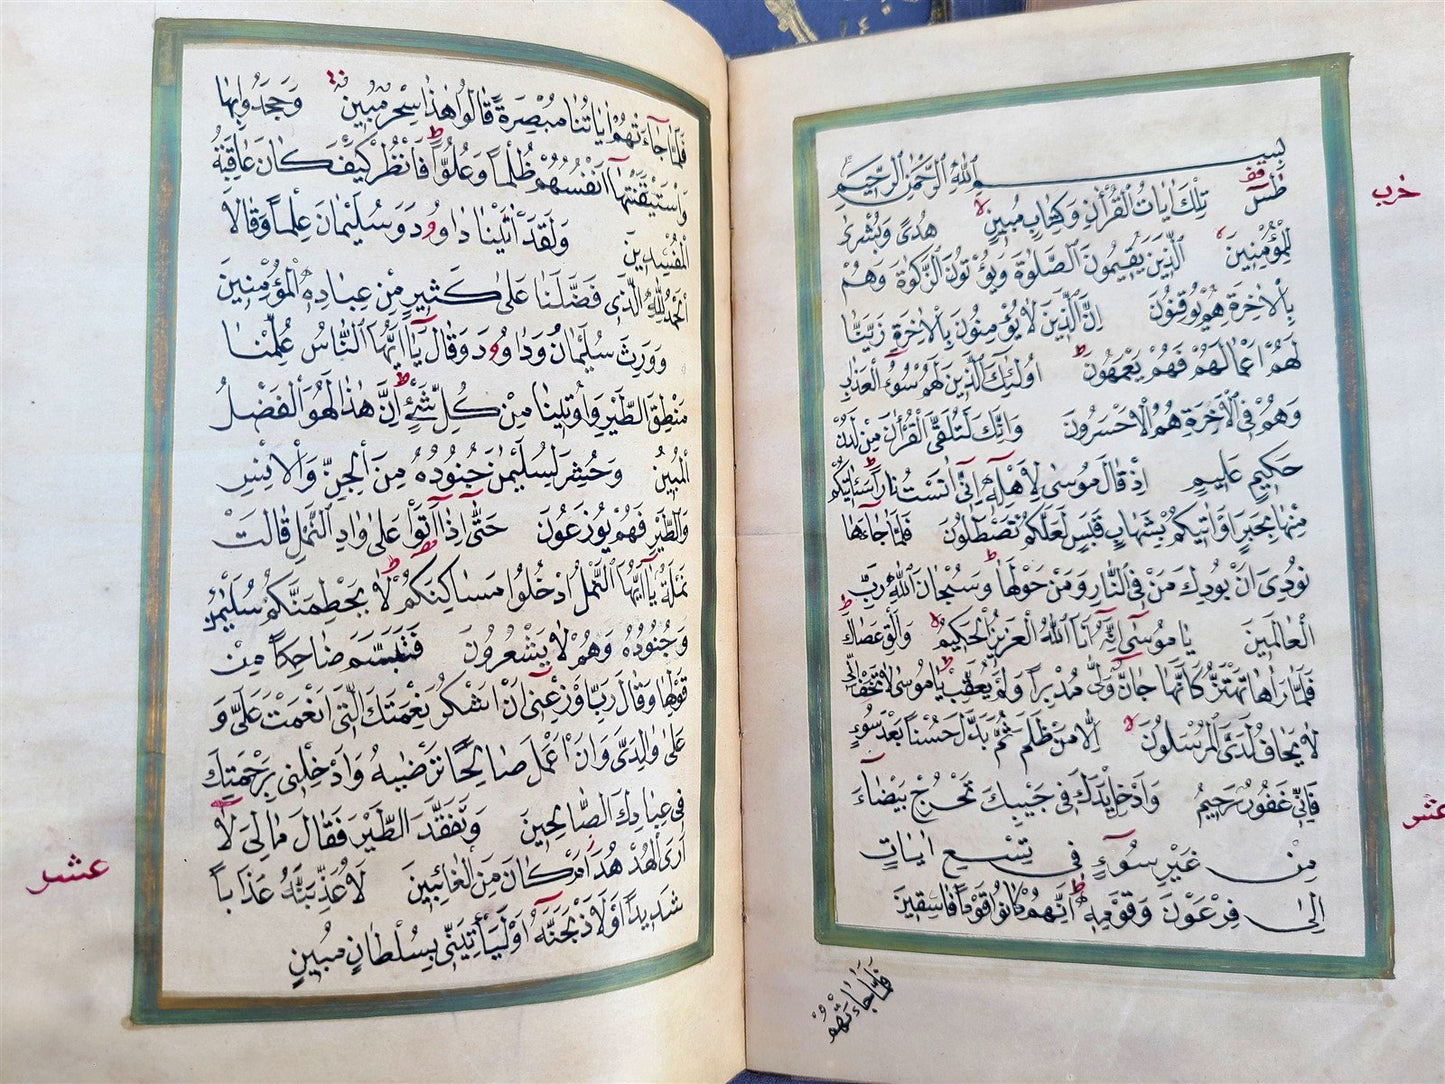 بِسْمِ اللهِ الرَّحْمٰنِ الرَّحِيمِ
طٰسٓ تِلْكَ اٰيَاتُ الْقُرْاٰنِ وَكِتَابٍ مُبِينٍ هُدًى وَبُشْرٰى
لِلْمُؤْمِنِينَ الَّذِينَ يُقِيمُونَ الصَّلٰوةَ وَيُؤْتُونَ الزَّكٰوةَ وَهُمْ
بِالْاٰخِرَةِ هُمْ يُوقِنُونَ اِنَّ الَّذِينَ لَا يُؤْمِنُونَ بِالْاٰخِرَةِ زَيَّنَّا
لَهُمْ اَعْمَالَهُمْ فَهُمْ يَعْمَهُونَ اُولٰٓئِكَ الَّذِينَ لَهُمْ سُوٓءُ الْعَذَابِ
وَهُمْ فِي الْاٰخِرَةِ هُمُ الْاَخْسَرُونَ وَاِنَّكَ لَتُلَقَّى الْقُرْاٰنَ مِنْ لَدُنْ
حَكِيمٍ عَلِيمٍ اِذْ قَالَ مُوسٰى لِاَهْلِهٓ اِنِّٓي اٰنَسْتُ نَارًا سَاٰتِيكُمْ
مِنْهَا بِخَبَرٍ اَوْ اٰتِيكُمْ بِشِهَابٍ قَبَسٍ لَعَلَّكُمْ تَصْطَلُونَ فَلَمَّا جَٓاءَهَا
نُودِيَ اَنْ بُورِكَ مَنْ فِي النَّارِ وَمَنْ حَوْلَهَا وَسُبْحَانَ اللهِ رَبِّ
الْعَالَمِينَ يَا مُوسٰٓى اِنَّهُٓ اَنَا اللهُ الْعَزِيزُ الْحَكِيمُ وَاَلْقِ عَصَاكَ
فَلَمَّا رَاٰهَا تَهْتَزُّ كَاَنَّهَا جَٓانٌّ وَلّٰى مُدْبِرًا وَلَمْ يُعَقِّبْ يَا مُوسٰى لَا تَخَفْ اِنِّي
لَا يَخَافُ لَدَيَّ الْمُرْسَلُونَ اِلَّا مَنْ ظَلَمَ ثُمَّ بَدَّلَ حُسْنًا بَعْدَ سُوٓءٍ
فَاِنِّي غَفُورٌ رَحِيمٌ وَاَدْخِلْ يَدَكَ فِي جَيْبِكَ تَخْرُجْ بَيْضَٓاءَ
مِنْ غَيْرِ سُوٓءٍ فِي تِسْعِ اٰيَاتٍ
اِلٰى فِرْعَوْنَ وَقَوْمِهٖ اِنَّهُمْ كَانُوا قَوْمًا فَاسِقِينَ
فَلَمَّا جَٓاءَتْهُمْ
حزب
عشر
فَلَمَّا جَٓاءَتْهُمْ اٰيَاتُنَا مُبْصِرَةً قَالُوا هٰذَا سِحْرٌ مُبِينٌ وَجَحَدُوا بِهَا
وَاسْتَيْقَنَتْهَٓا اَنْفُسُهُمْ ظُلْمًا وَعُلُوًّا فَانْظُرْ كَيْفَ كَانَ عَاقِبَةُ
الْمُفْسِدِينَ وَلَقَدْ اٰتَيْنَا دَاوُودَ وَسُلَيْمَانَ عِلْمًا وَقَالَا
الْحَمْدُ لِلّٰهِ الَّذِي فَضَّلَنَا عَلٰى كَثِيرٍ مِنْ عِبَادِهِ الْمُؤْمِنِينَ
وَوَرِثَ سُلَيْمَانُ دَاوُودَ وَقَالَ يَٓا اَيُّهَا النَّاسُ عُلِّمْنَا
مَنْطِقَ الطَّيْرِ وَاُوتِينَا مِنْ كُلِّ شَيْءٍ اِنَّ هٰذَا لَهُوَ الْفَضْلُ
الْمُبِينُ وَحُشِرَ لِسُلَيْمٰنَ جُنُودُهُ مِنَ الْجِنِّ وَالْاِنْسِ
وَالطَّيْرِ فَهُمْ يُوزَعُونَ حَتّٰٓى اِذَٓا اَتَوْا عَلٰى وَادِ النَّمْلِ قَالَتْ
نَمْلَةٌ يَٓا اَيُّهَا النَّمْلُ ادْخُلُوا مَسَاكِنَكُمْ لَا يَحْطِمَنَّكُمْ سُلَيْمٰنُ
وَجُنُودُهُ وَهُمْ لَا يَشْعُرُونَ فَتَبَسَّمَ ضَاحِكًا مِنْ
قَوْلِهَا وَقَالَ رَبِّ اَوْزِعْنِٓي اَنْ اَشْكُرَ نِعْمَتَكَ الَّتِٓي اَنْعَمْتَ عَلَيَّ وَ
عَلٰى وَالِدَيَّ وَاَنْ اَعْمَلَ صَالِحًا تَرْضٰيهُ وَاَدْخِلْنِي بِرَحْمَتِكَ
فِي عِبَادِكَ الصَّالِحِينَ وَتَفَقَّدَ الطَّيْرَ فَقَالَ مَا لِيَ لَٓا
اَرَى الْهُدْهُدَ اَمْ كَانَ مِنَ الْغَٓائِبِينَ لَاُعَذِّبَنَّهُ عَذَابًا
شَدِيدًا اَوْ لَاَذْبَحَنَّهُٓ اَوْ لَيَأْتِيَنِّي بِسُلْطَانٍ مُبِينٍ
عشر